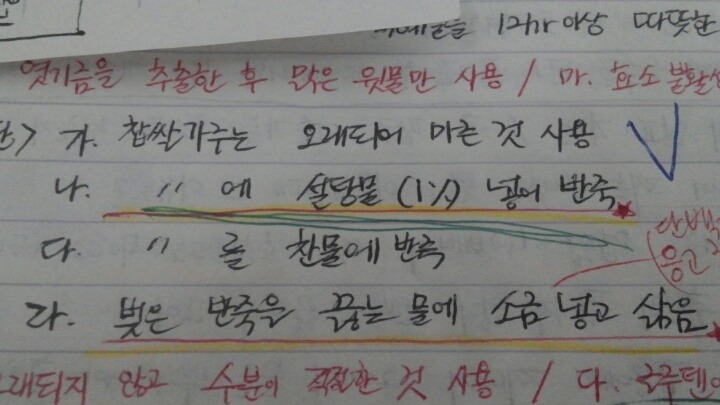 12hr 이상 따뜻한
엿기름을 추출한 후 맑은 윗물만 사용 / 마. 효소 불활성
> 가. 찹쌀가루는 오래되어 마른 것 사용
나. 〃 에 설탕물 (1%) 넣어 반죽
다. 〃 를 찬물에 반죽
단백
응고
라. 빚은 반죽을 끓는 물에 소금 넣고 삶음
오래되지 않고 수분이 적절한 것 사용 / 다.